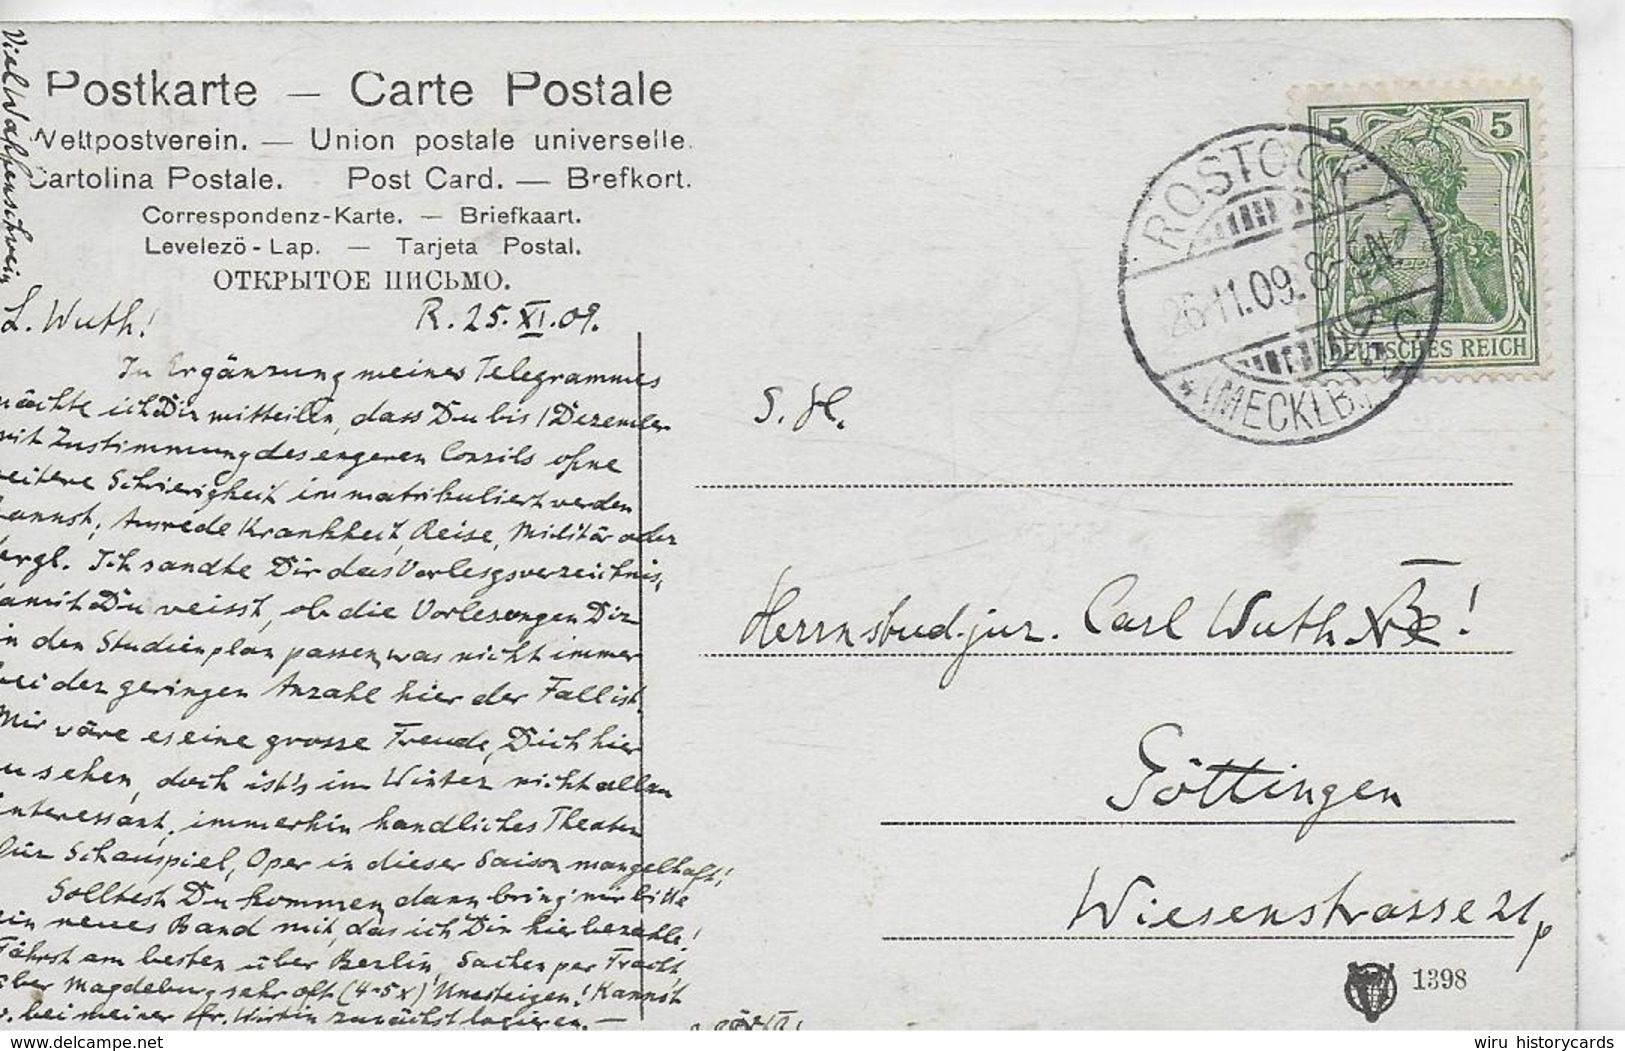 Postkarte — Carte Postale
Weltpostverein. — Union postale universelle.
Cartolina Postale. Post Card. — Brefkort.
Correspondenz-Karte. — Briefkaart.
Levelezö-Lap. — Tarjeta Postal.
ОТКРЫТОЕ ПИСЬМО.
Viel
L. Wuth! R. 25.XI.09.
In Ergänzung meines Telegrammes
möchte ich Dir mitteilen, dass Du bis 1 Dezember
mit Zustimmung des engeren Konzils ohne
weitere Schwierigkeit immatrikuliert werden
kannst, Ausrede Krankheit, Reise, Militär oder
dergl. Ich sandte Dir das Vorlesgsverzeichnis,
damit Du weisst, ob die Vorlesungen Dir
in den Studienplan passen, was nicht immer
bei der geringen Anzahl hier der Fall ist.
Mir wäre es eine grosse Freude, Dich hier
zu sehen, doch ist's im Winter nicht allzu
interessant, immerhin handliches Theater
für Schauspiel, Oper in dieser Saison mangelhaft!
Solltest Du kommen, dann bring' mir bitte
ein neues Band mit, das ich Dir hier bezahle!
Fährst am besten über Berlin, Sachen per Fracht,
über Magdeburg sehr oft (4-5x) Umsteigen! Kannst
bei meiner fr. Wirtin zunächst logieren. —
5 5
DEUTSCHES REICH
ROSTOCK
26.11.09. 8-9N
* (MECKLB.)
S. H.
Herrn stud. jur. Carl Wuth
Göttingen
Wiesenstrasse 21
1398
wiru historycards
delcampe.net